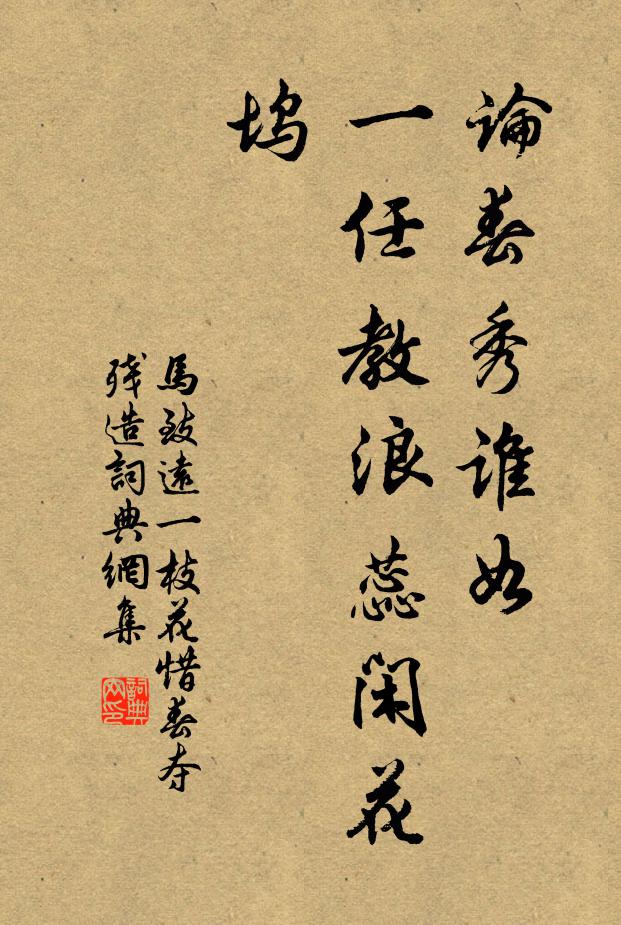 論春秀誰如
一任教浪蕊閑花
塢
馬致遠一枝花惜春夺
残造詞典網集
詞典
网印